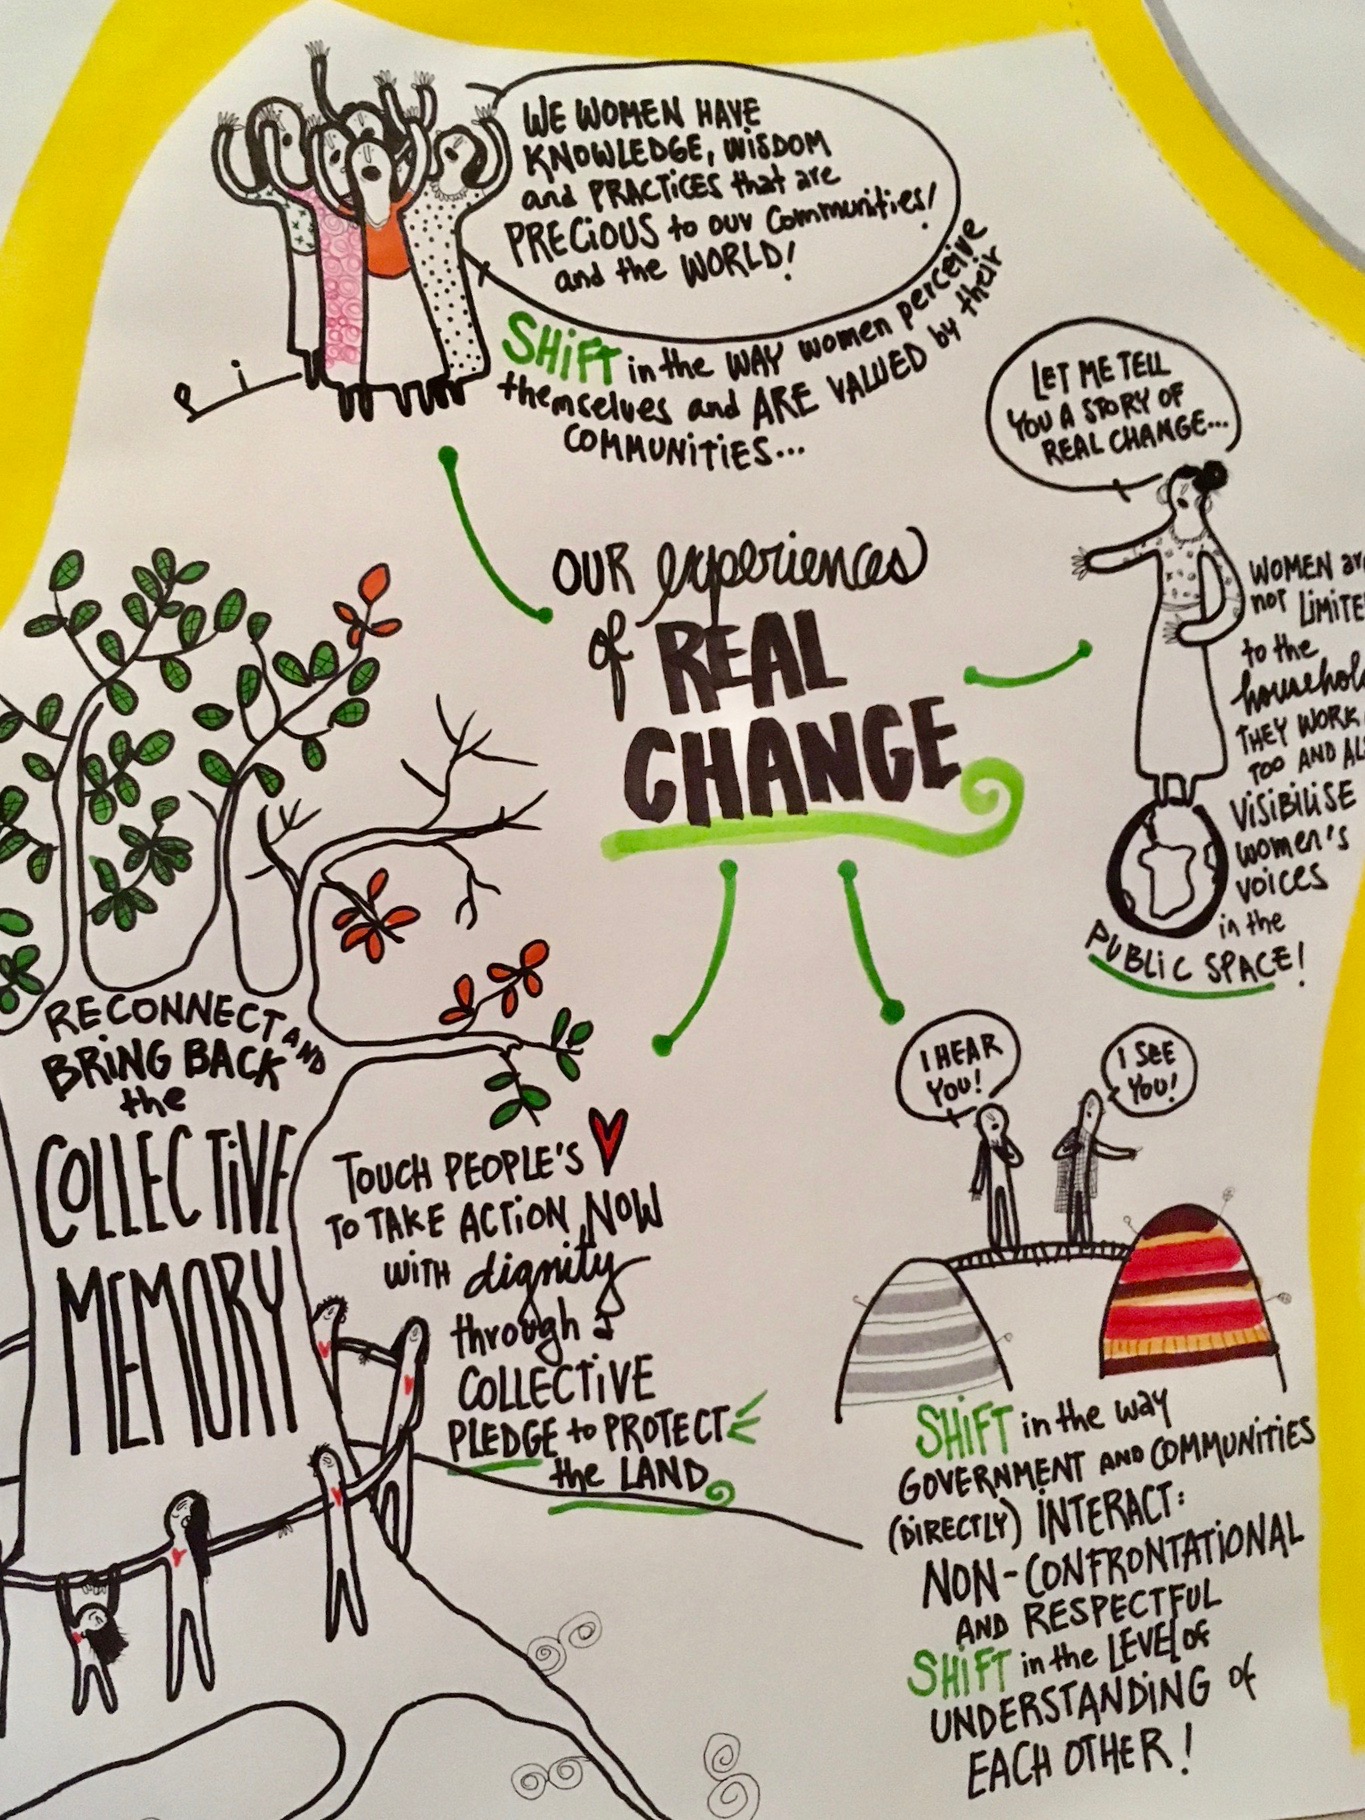 WE WOMEN HAVE
KNOWLEDGE, WISDOM
and PRACTICES that are
PRECIOUS to our Communities!
and the WORLD!
SHIFT in the WAY women perceive
themselves and ARE VALUED by their
COMMUNITIES...
LET ME TELL
YOU A STORY OF
REAL CHANGE...
OUR experiences
of REAL
CHANGE
WOMEN
not
to the
THEY WORK
TOO AND
VISIBILISE
women's
voices
in the
PUBLIC SPACE!
RECONNECT AND
BRING BACK
the
COLLECTIVE
MEMORY
TOUCH PEOPLE'S
TO TAKE ACTION NOW
WITH dignity
through a
COLLECTIVE
PLEDGE to PROTECT
the LAND
I HEAR
YOU!
I SEE
YOU!
SHIFT in the way
GOVERNMENT AND COMMUNITIES
(DIRECTLY) INTERACT:
NON-CONFRONTATIONAL
AND RESPECTFUL
SHIFT in the LEVEL of
UNDERSTANDING of
EACH OTHER!